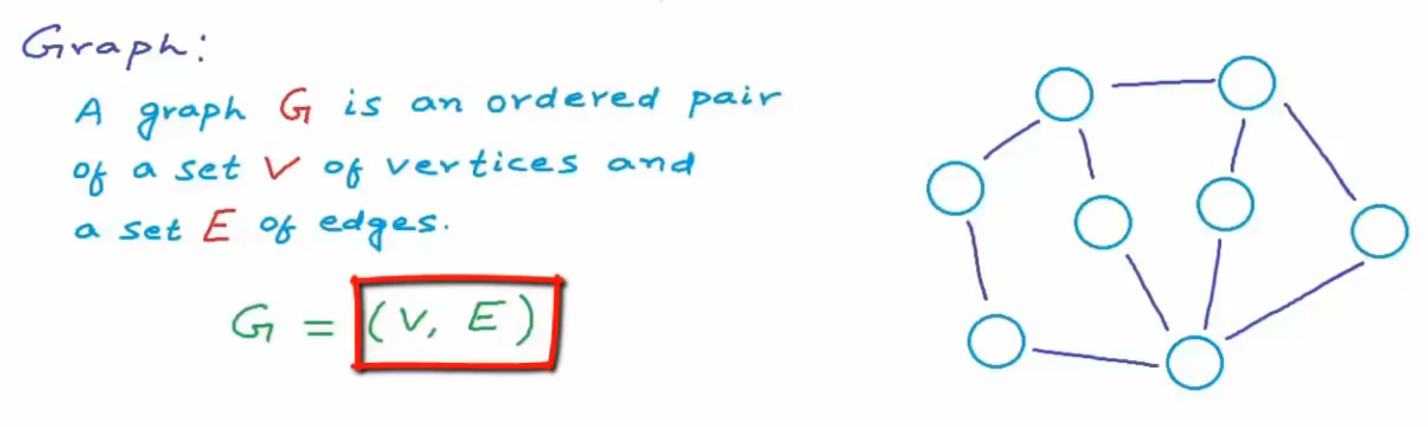 Graph:
A graph G is an ordered pair
of a set V of vertices and
a set E of edges.
G = (V, E)